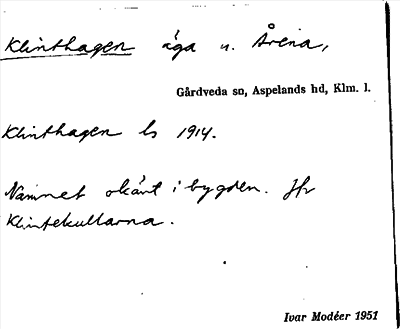 Klinthagen äga u. Årena,
Gårdveda sn, Aspelands hd, Klm. l.
Klinthagen ls 1914.
Namnet okänt i bygden. Jfr
Klintekullarna.
Ivar Modéer 1951